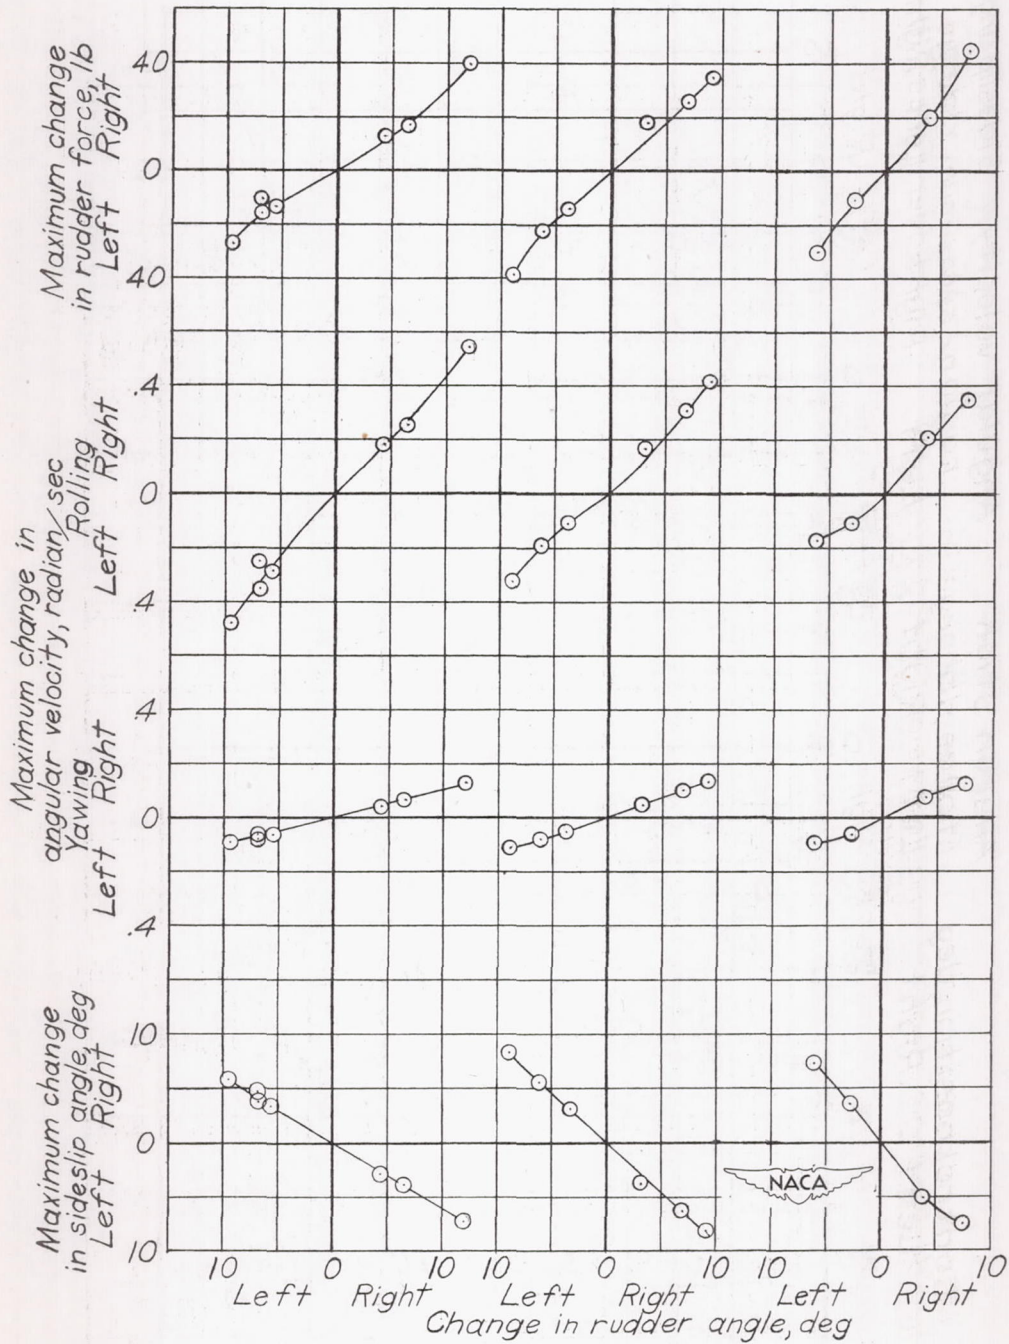 Maximum change
in rudder force, lb
Left Right
40
0
40
Maximum change in
angular velocity, radian/sec
Rolling
Left Right
.4
0
.4
Yawing
Left Right
.4
0
.4
Maximum change
in sideslip angle, deg
Left Right
10
0
10
NACA
10 0 10 10 0 10 10 0 10
Left Right Left Right Left Right
Change in rudder angle, deg